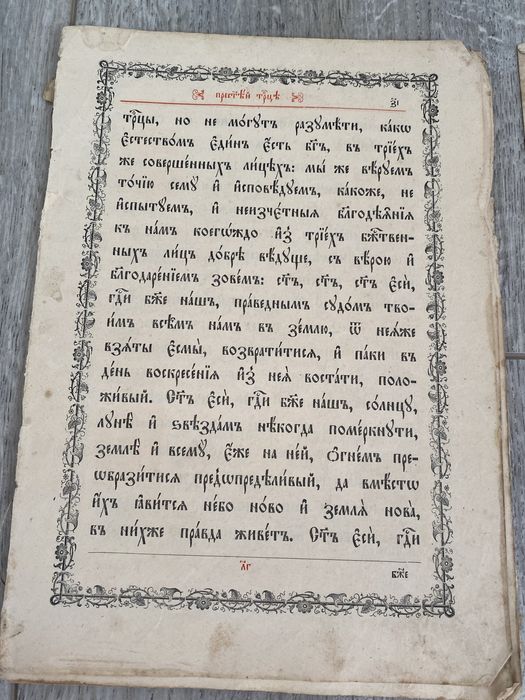 прест҃ѣ́й трⷪ҇цѣ
з҃і
трⷪ҇цы, но не мо́гꙋтъ разꙋмѣ́ти, ка́кѡ
є҆стество́мъ є҆ди́нъ є҆́сть бг҃ъ, въ трїе́хъ
же соверше́нныхъ ли́цѣхъ: мы́ же вѣ́рꙋемъ
то́чїю семꙋ̀ и҆ и҆сповѣ́дꙋемъ, ка́коже, не
и҆спы́тꙋемъ, и҆ неизче́тныѧ благодѣѧ̑нїѧ
къ на́мъ коегѡ́ждо и҆з̾ трїе́хъ бж҃е́ствен-
ныхъ ли́цъ до́брѣ вѣ́дꙋще, съ вѣ́рою и҆
благодаре́нїемъ зове́мъ: ст҃ъ, ст҃ъ, ст҃ъ є҆сѝ,
гдⷭ҇и бж҃е на́шъ, пра́веднымъ сꙋдо́мъ тво-
и́мъ всѣ́мъ на́мъ въ зе́млю, ѿ неѧ́же
взѧ́ты є҆смы̀, возврати́тисѧ, и҆ па́ки въ
де́нь воскресе́нїѧ и҆з̾ неѧ̀ воста́ти, поло-
жи́вый. Ст҃ъ є҆сѝ, гдⷭ҇и бж҃е на́шъ, со́лнцꙋ,
лꙋнѣ̀ и҆ ѕвѣзда́мъ нѣ́когда поме́ркнꙋти,
землѣ́ и҆ всемꙋ̀, є҆́же на не́й, ѻ҆гне́мъ пре-
ѡбрази́тисѧ пред̾ѡпредѣли́вый, да вмѣ́стѡ
и҆́хъ ꙗ҆ви́тсѧ не́бо но́во и҆ землѧ̀ нова̀,
въ ни́хже пра́вда живе́тъ. Ст҃ъ є҆сѝ, гдⷭ҇и
л҃г
бж҃е